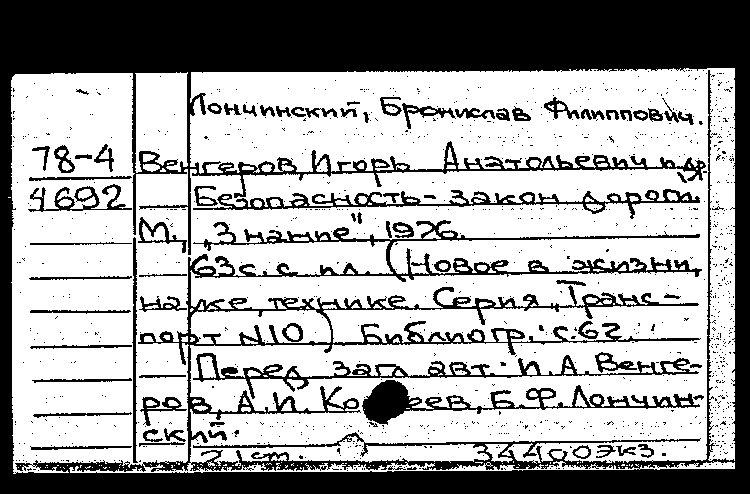 Лончинский, Бронислав Филиппович.
78-4 Венгеров, Игорь Анатольевич и др
4692 Безопасность - закон дороги.
М., „Знание", 1976.
63с. с ил. (Новое в жизни,
науке, технике. Серия „Транс-
порт N10.) Библиогр.: с.62.
Перед загл авт.: И.А. Венге-
ров, А.И. Ко еев, Б.Ф. Лончин-
ский.
34400экз.